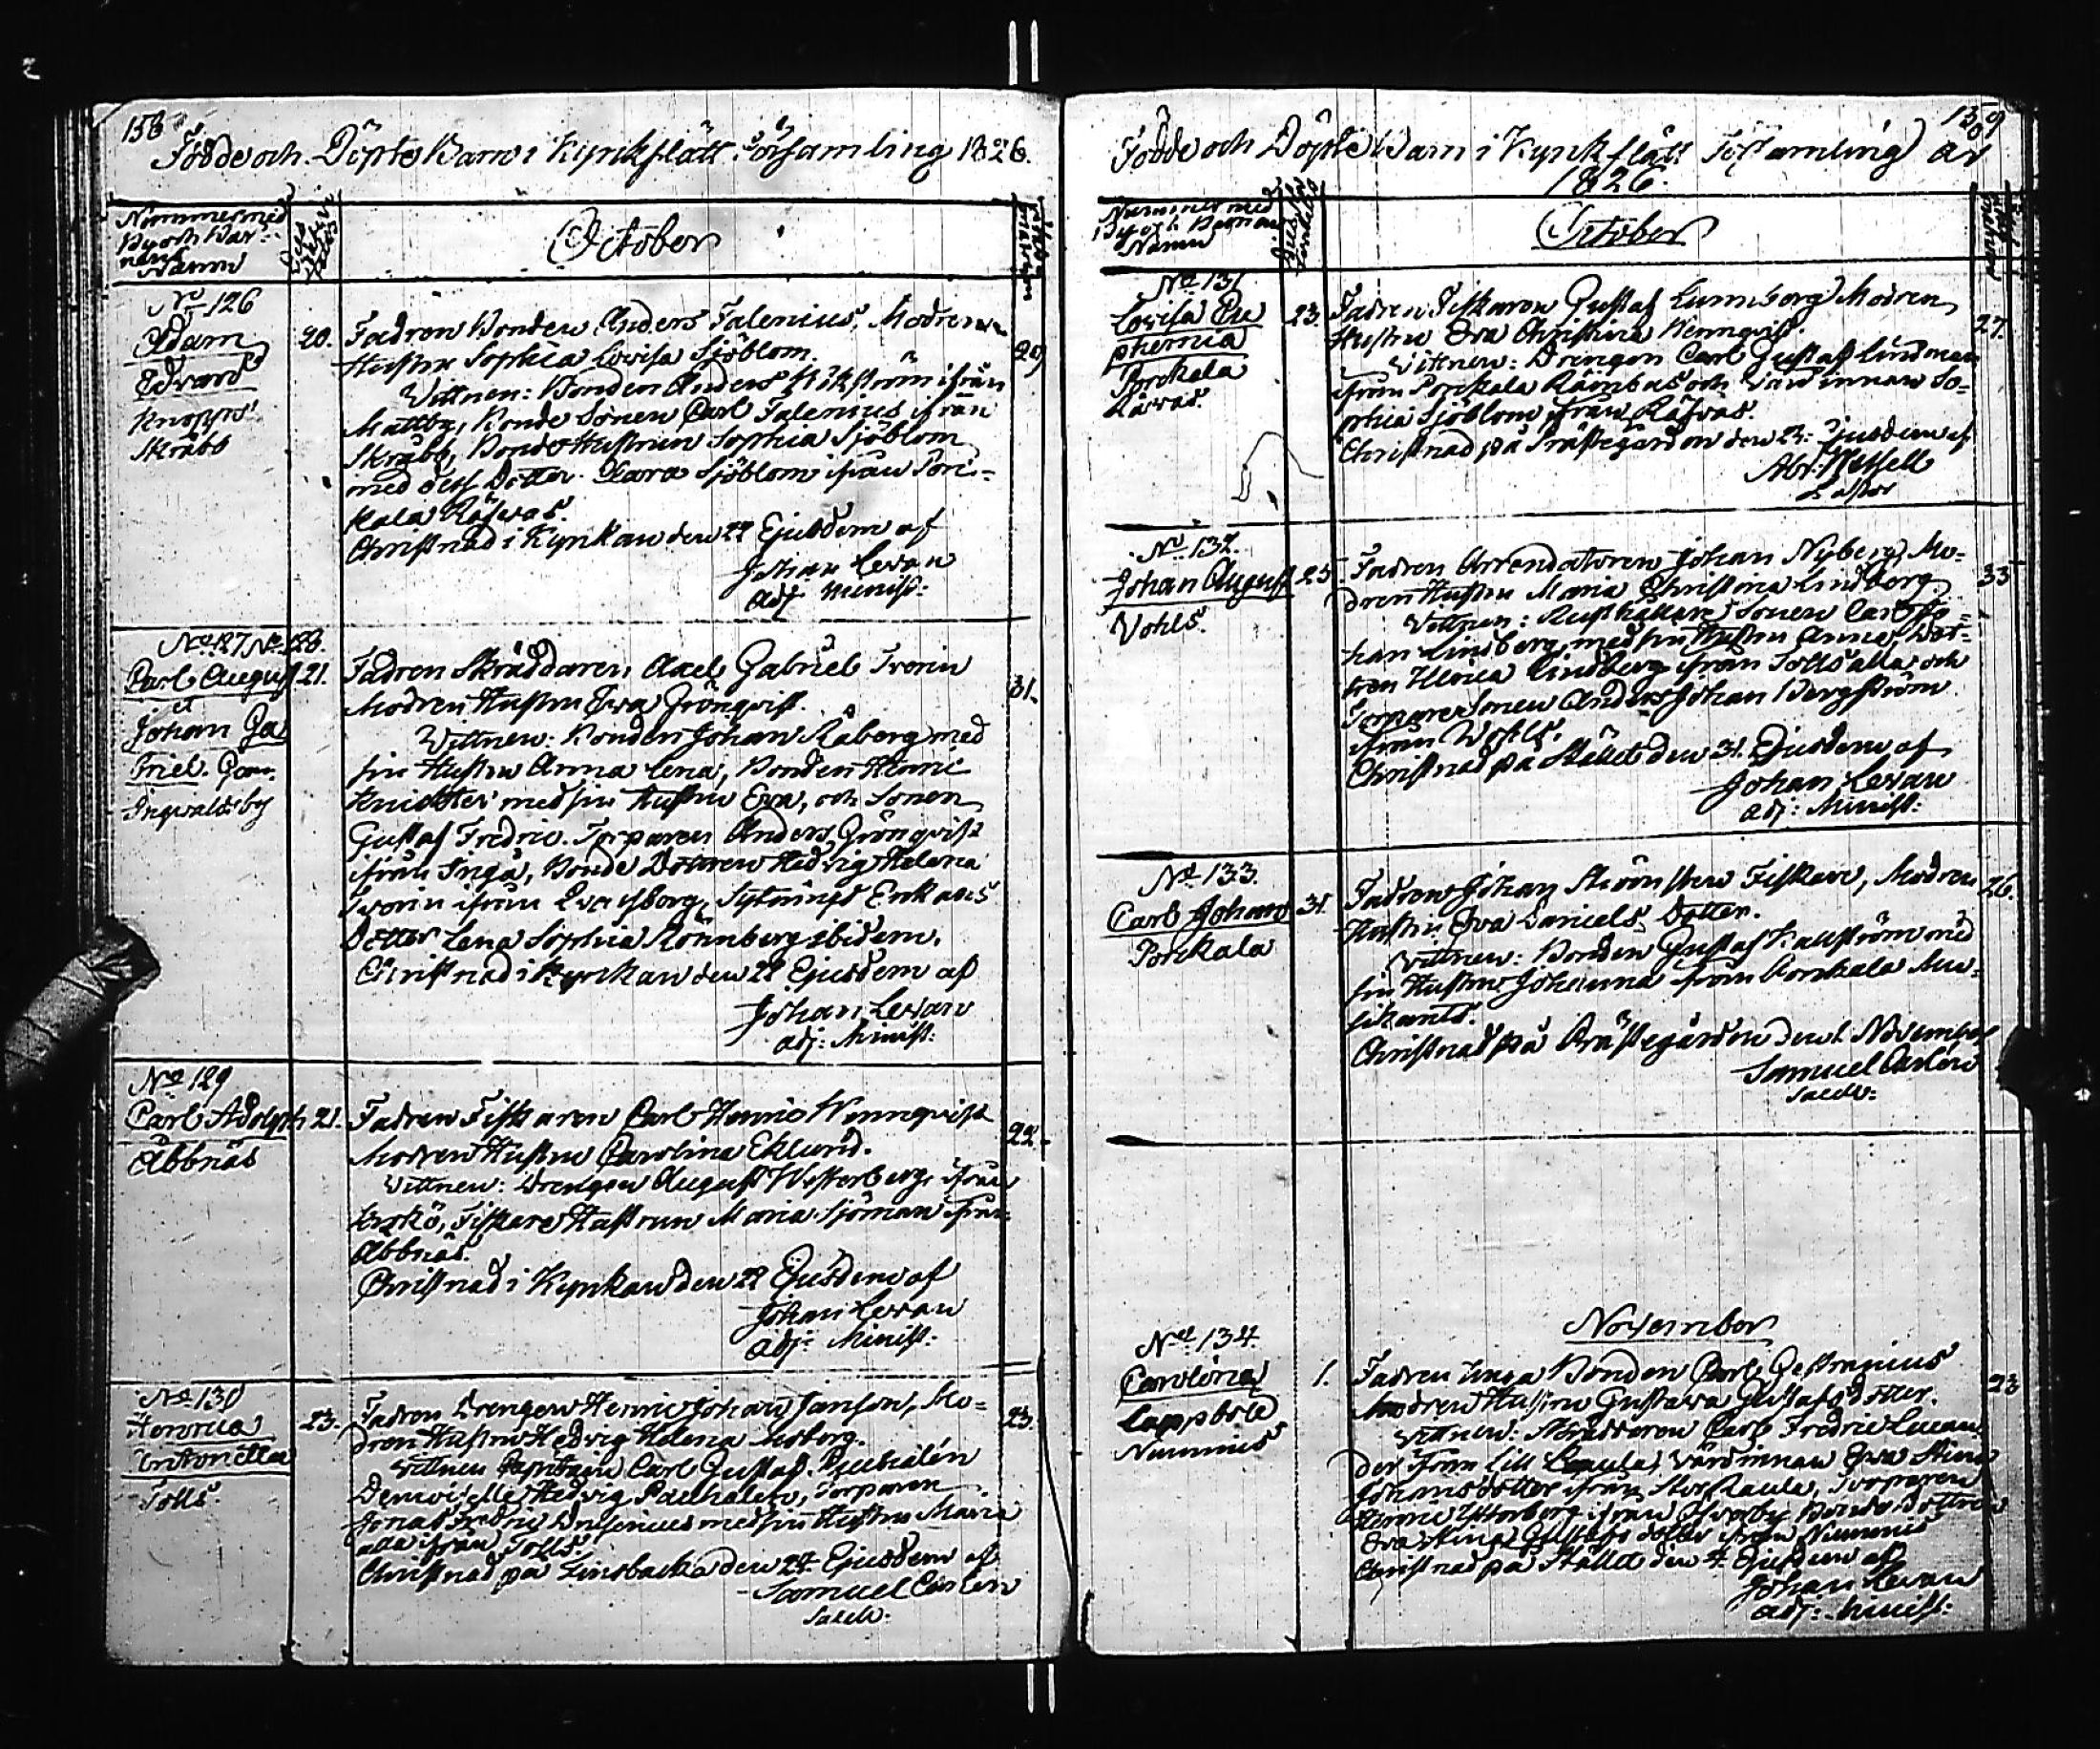 158
Födde och Döpte Barn i Kyrkslätt Församling 1826.
Nummer med
By och Bar-
nens
Namn
October
No 126
Adam
Edvard
Knopps
Skräbb
20.
Fadren Bonden Anders Falenius, Modren
Hustru Sophia Lovisa Sjöblom.
29
Vittnen: Bonden Anders Kökström ifrån
Mattby, Bonde Sonen Carl Falenius ifrån
Skräbb, Bonde Hustrun Sophia Sjöblom
med dess Dotter Clara Sjöblom ifrån Porc-
kala Räfvas.
Christnad i Kyrkan den 22 Ejusdem af
Johan Levan
Adj. Minist:
No 127 No 128.
Carl August
et
Johan Ga
briel. Gem.
Ingvaldsby
21.
Fadren Skräddaren Axel Gabriel Ivorin
Modren Hustru Eva Grönqvist.
31.
Vittnen: Bonden Johan Råberg med
sin Hustru Anna Lena, Bonden Henric
med sin Hustru Eva, och Sonen
Gustaf Fredric. Torparen Anders Grönqvist
ifrån Ingå, Bonde Dottren Hedvig Helena
Ivorin ifrån Sytnings Enkans
Dotter Lena Sophia Rönnberg ibidem.
Christnad i Kyrkan den 22 Ejusdem af
Johan Levan
adj: Minist:
No 129
Carl Adolph
Åbbnäs
21.
Fadren Fiskaren Carl Henric Wennqvist
Modren Hustru Carolina Eklund.
22.
Vittnen: Drengen August Westerberg ifrån
Fiskare Hustrun Maria Sjöman ifrån
Åbbnäs.
Christnad i Kyrkan den 22 Ejusdem af
Johan Levan
Adj: Minist:
No 130
Henrica
Antonetta
Tolls.
23.
Fadren Drengen Henric Johan Janson, Mo-
dren Hustru Hedvig Helena Moberg.
23.
Vittnen Capitain Carl Gustaf
Demoiselle Hedvig Torparen
Jonas Fredric med sin Hustru Maria
alla ifrån Tolls
Christnad på Finsbacka den 24. Ejusdem af
Samuel Carlen
Sacell:
159
Födde och Döpte Barn i Kyrkslätt Församling År
1826.
Nummer med
By och Barnens
Namn
October
No 131
Lovisa Eu
phemia
Porkala
Räfvas.
23.
Fadren Fiskaren Gustaf Lunnborg Modren
Hustru Eva Christina Wennqvist.
27.
Vittnen: Drengen Carl Gustaf Lindman
ifrån Porckala och Värdinnan So-
phia Sjöblom ifrån Räfvas.
Christnad på Prästegården den 23: Ejusdem af
Abr: Wessell
Pastor
No 132.
Johan August
Vohls.
25.
Fadren Arrendatoren Johan Nyberg, Mo-
dren Hustru Maria Christina Lindberg
33
Vittnen: Rusthållare Sonen Carl Jo-
han Lindberg med sin Hustru Anna, Dot-
tren Ulrica Lindberg ifrån Tolls alla och
Torpare Sonen Anders Johan Bergström
ifrån Wohls.
Christnad på Stället den 31. Ejusdem af
Johan Levan
adj: Minist:
No 133.
Carl Johan
Porckala
31.
Fadren Johan Fiskare, Modren
Hustru Eva Daniels Dotter.
26.
Vittnen: Bonden Gustaf Kallström med
sin Hustru Johanna från Porckala Mu-
sikants.
Christnad på Prästegården den 1. November
Samuel Carlen
Sacell:
November
No 134.
Carolina
Lappböle
Nimmis
1.
Fadren Unga Bonden Carl
Modren Hustru Gustava Gustafs Dotter.
23
Vittnen: Skräddaren Carl Fredric
der från Lill Värdinnan Eva Stina
Johansdotter ifrån Torparen
Henric ifrån Bonde Dottren
Eva Stina Gustafs dotter ifrån Nimmis
Christnad på Stället den 4 Ejusdem af
Johan Levan
adj: Minist: